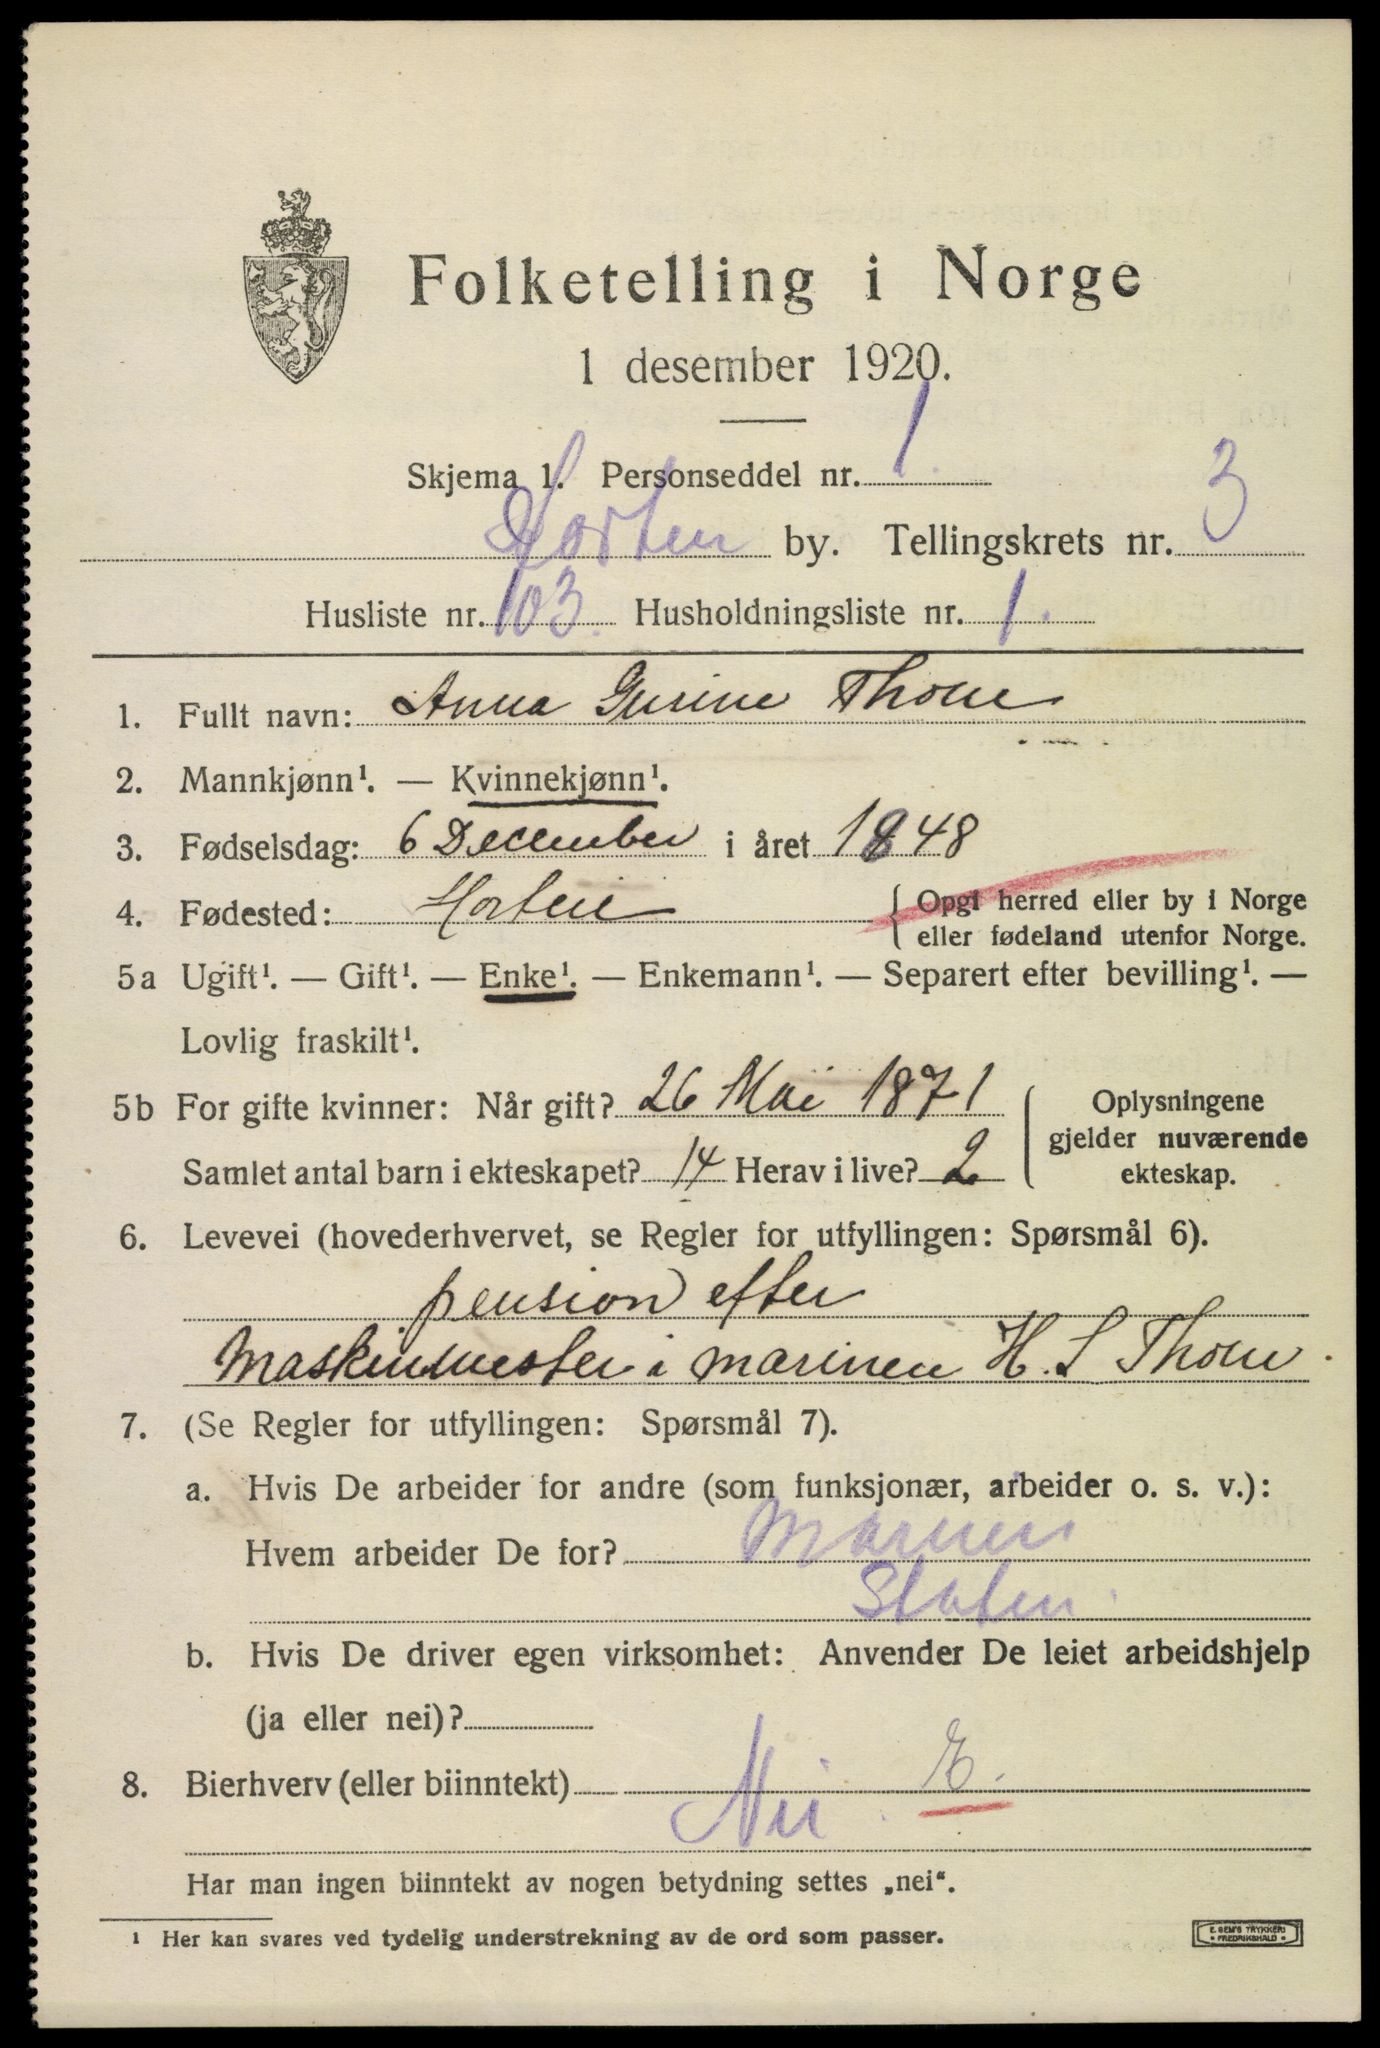 Folketelling i Norge
1 desember 1920.
Skjema 1. Personseddel nr. 1.
Horten by. Tellingskrets nr. 3
Husliste nr. 103. Husholdningsliste nr. 1.
1. Fullt navn: Anna Gurine Thone
2. Mannkjønn¹. — Kvinnekjønn¹.
3. Fødselsdag: 6 December i året 1848
4. Fødested: Horten { Opgi herred eller by i Norge
eller fødeland utenfor Norge.
5a Ugift¹. — Gift¹. — Enke¹. — Enkemann¹. — Separert efter bevilling¹. —
Lovlig fraskilt¹.
5b For gifte kvinner: Når gift? 26 Mai 1871
Samlet antal barn i ekteskapet? 14 Herav i live? 2
{ Oplysningene
gjelder nuværende
ekteskap.
6. Levevei (hovederhvervet, se Regler for utfyllingen: Spørsmål 6).
pension efter
Maskinmester i marinen H. L Thone.
7. (Se Regler for utfyllingen: Spørsmål 7).
a. Hvis De arbeider for andre (som funksjonær, arbeider o. s. v.):
Hvem arbeider De for? Marinen
Staten.
b. Hvis De driver egen virksomhet: Anvender De leiet arbeidshjelp
(ja eller nei)?
8. Bierhverv (eller biinntekt) E.
Nei.
Har man ingen biinntekt av nogen betydning settes „nei“.
¹ Her kan svares ved tydelig understrekning av de ord som passer.
E. SEM'S TRYKKERI
• FREDRIKSHALD •